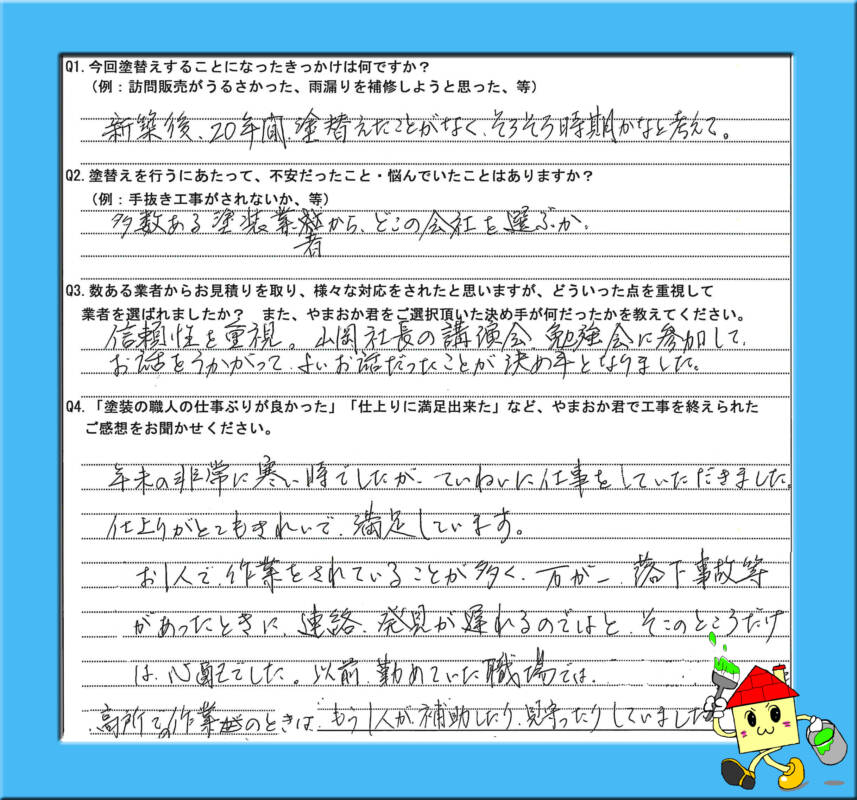 Q1. 今回塗替えすることになったきっかけは何ですか？
（例：訪問販売がうるさかった、雨漏りを補修しようと思った、等）
新築後、20年間、塗替えたことがなく、そろそろ時期かなと考えて。
Q2. 塗替えを行うにあたって、不安だったこと・悩んでいたことはありますか？
（例：手抜き工事がされないか、等）
多数ある塗装業者から、どこの会社を選ぶか。
Q3. 数ある業者からお見積りを取り、様々な対応をされたと思いますが、どういった点を重視して
業者を選ばれましたか？　また、やまおか君をご選択頂いた決め手が何だったかを教えてください。
信頼性を重視。山岡社長の講演会、勉強会に参加して、
お話をうかがって、よいお話だったことが決め手となりました。
Q4. 「塗装の職人の仕事ぶりが良かった」「仕上りに満足出来た」など、やまおか君で工事を終えられた
ご感想をお聞かせください。
年末の非常に寒い時でしたが、ていねいに仕事をしていただきました。
仕上りがとてもきれいで、満足しています。
お1人で、作業をされていることが多く、万が一、落下事故等
があったときに、連絡、発見が遅れるのではと、そこのところだけ
は、心配でした。以前、勤めていた職場では、
高所での作業のときは、もう1人が補助したり、見守ったりしていました